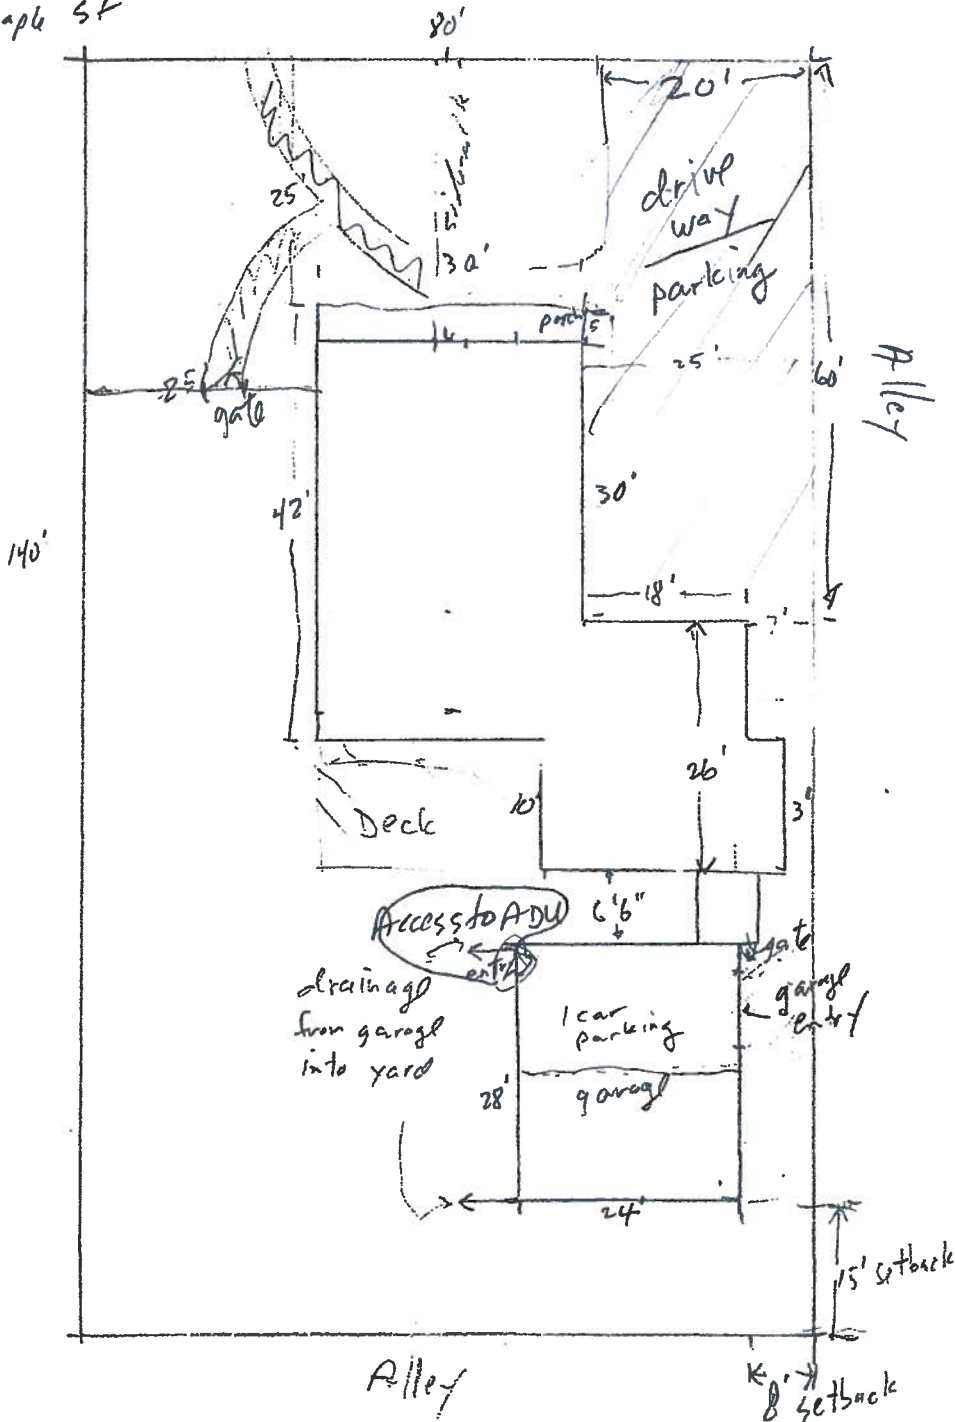 aple St
80'
20'
drive
way
parking
25'
30'
porch
5
25'
60'
Alley
25
gate
42'
30'
140'
18'
7'
26'
10'
3'
Deck
6'6"
Access to ADU
entry
gate
garage
entry
drainage
from garage
into yard
1 car
parking
garage
28'
24'
15' setback
8' setback
Alley